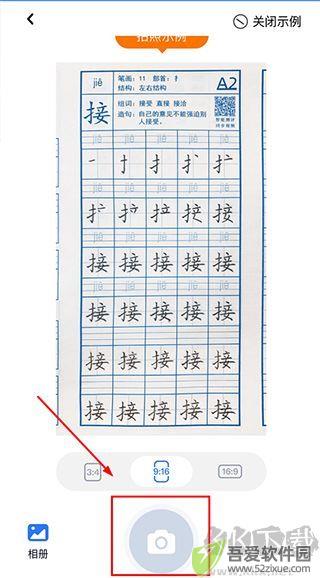 关闭示例
拍照示例
jiē
笔画：11 部首：扌
结构：左右结构
A2
接
组词：接受 直接 接洽
造句：自己的意见不能强迫别
人接受。
智能测评
同步视频
jiē jiē jiē jiē jiē
接 接 接 接 接
jiē jiē jiē jiē jiē
接 接 接 接 接
接 接 接 接 接
接 接 接 接 接
3:4
9:16
16:9
相册
吾爱软件园
www.52zixue.com